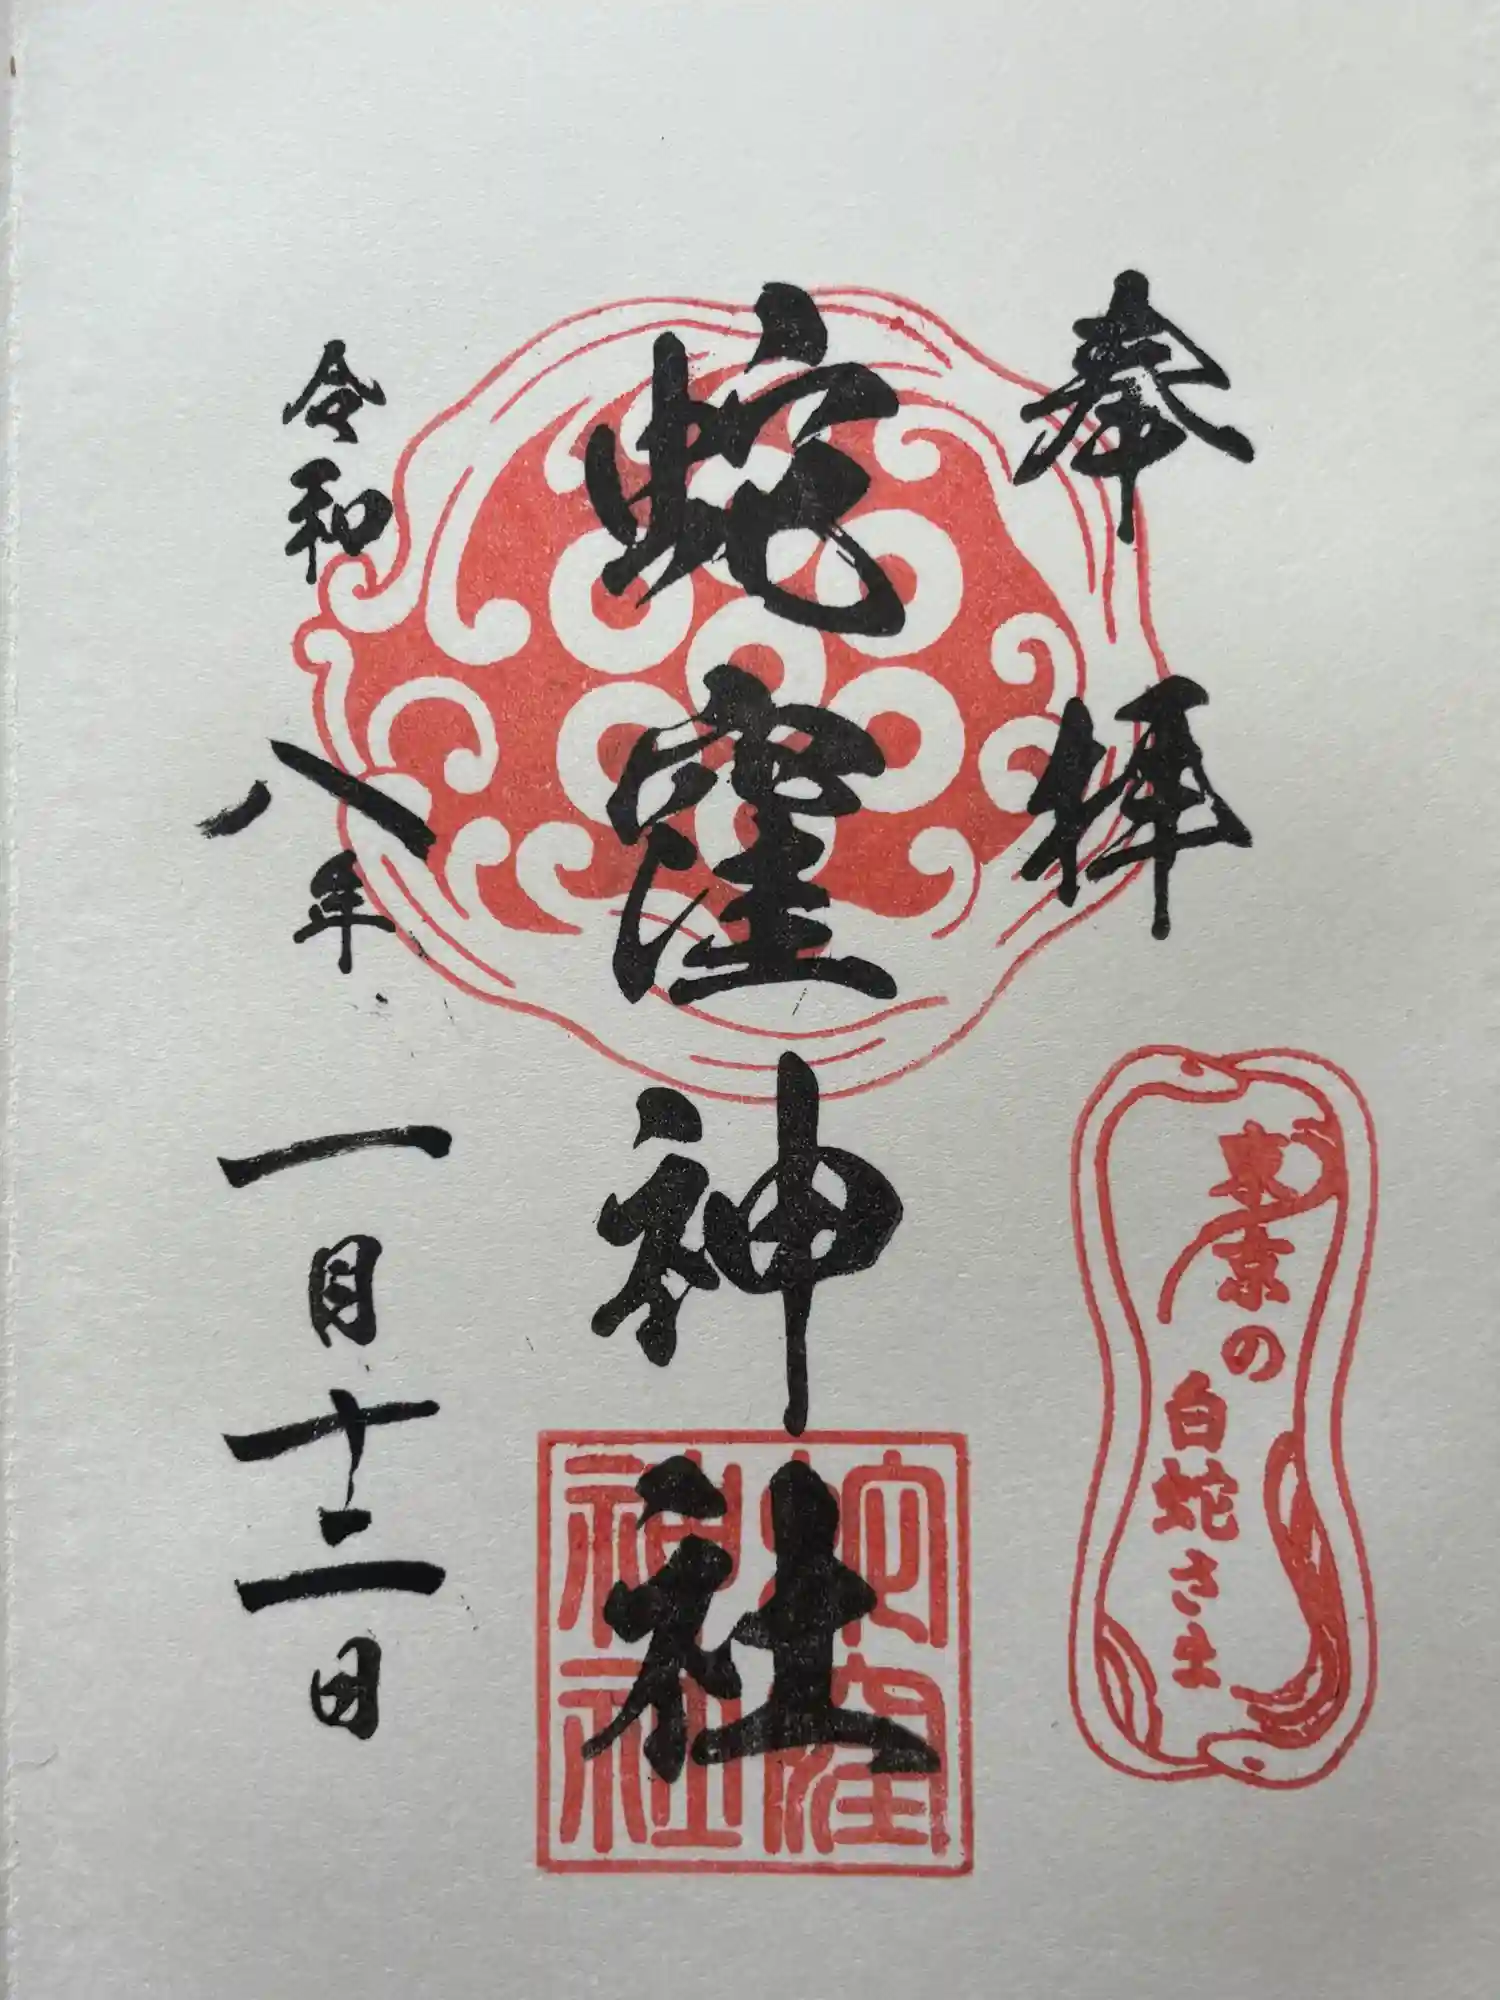 奉拝
東京の
白蛇さま
蛇窪神社
蛇窪
神社
令和八年一月十二日